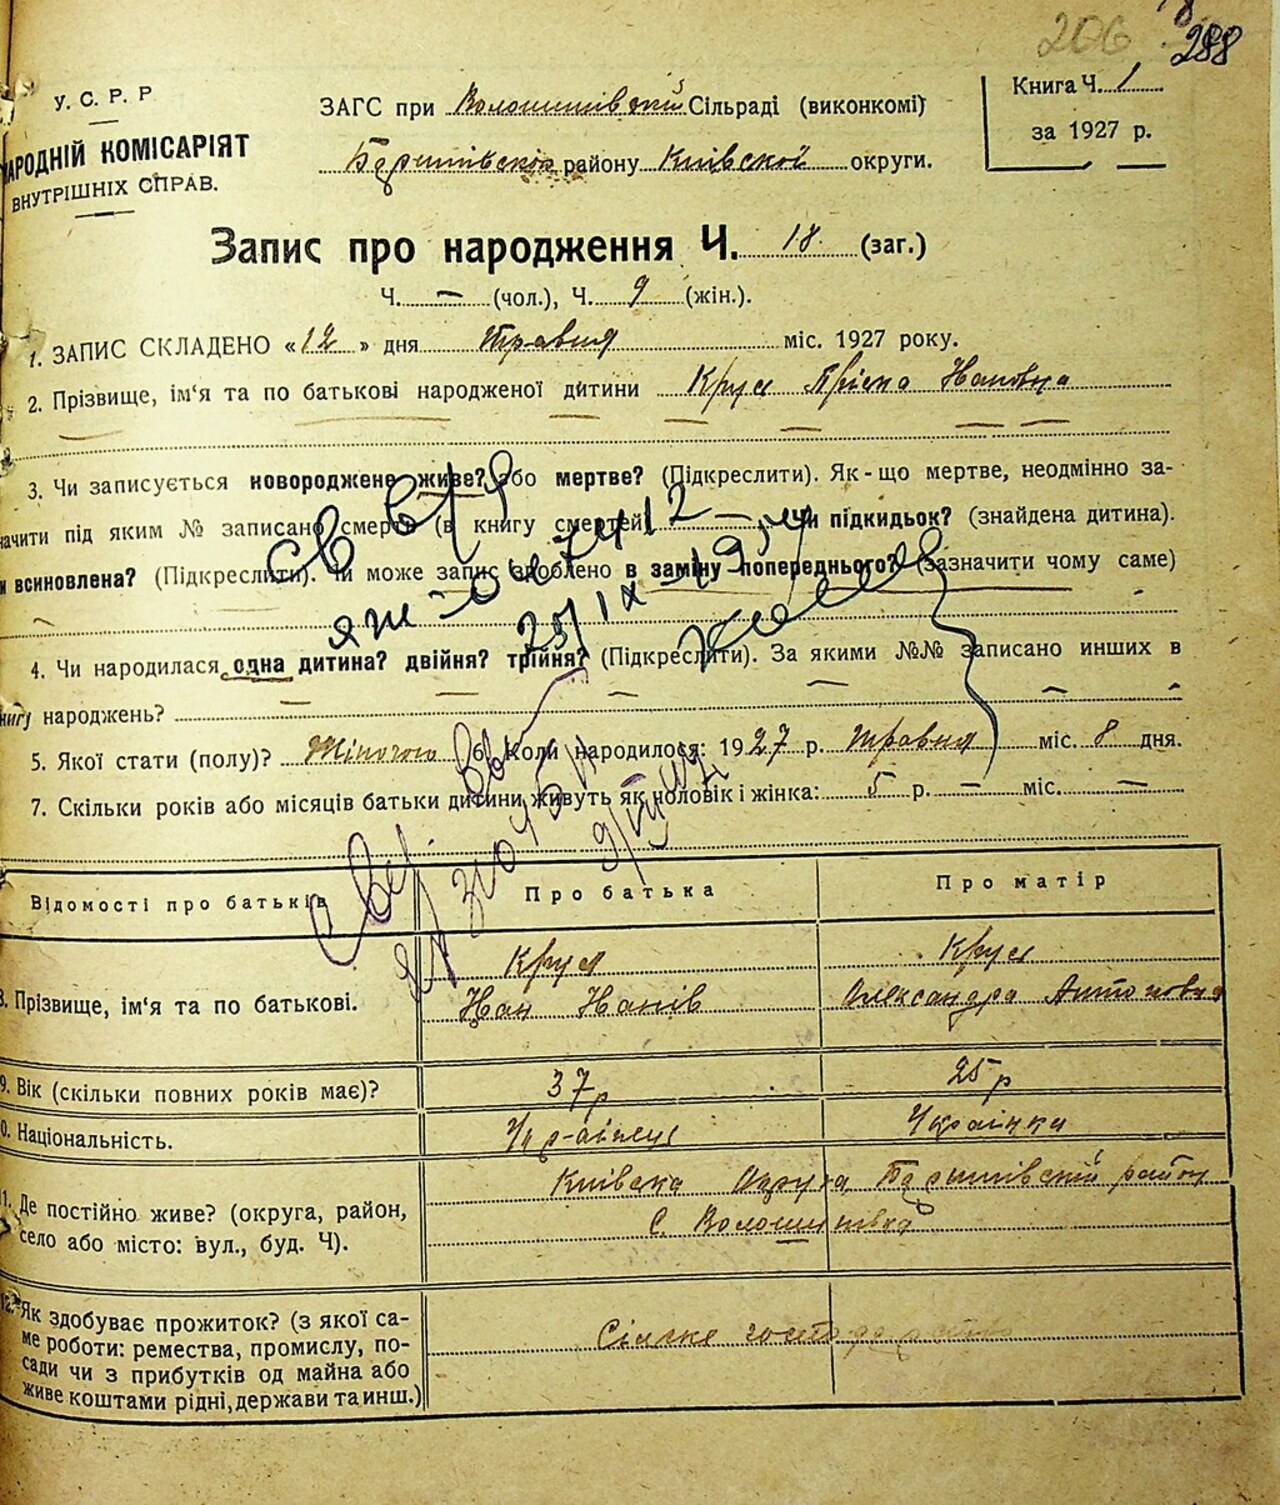 206 288
У. С. Р. Р.
НАРОДНІЙ КОМІСАРІЯТ
ВНУТРІШНІХ СПРАВ.
ЗАГС при Волошинівській Сільраді (виконкомі)
Баришівской району Київской округи.
Книга Ч. 1
за 1927 р.
Запис про народження Ч. 18 (заг.)
Ч. — (чол.), Ч. 9 (жін.).
1. ЗАПИС СКЛАДЕНО «12» дня травня міс. 1927 року.
2. Прізвище, ім'я та по батькові народженої дитини Крус
3. Чи записується новороджене живе? або мертве? (Підкреслити). Як-що мертве, неодмінно за-
начити під яким № записано смерть (в книгу смертей) чи підкидьок? (знайдена дитина).
и всиновлена? (Підкреслити). Чи може запис зроблено в заміну попереднього? (зазначити чому саме)
4. Чи народилася одна дитина? двійня? трійня? (Підкреслити). За якими №№ записано инших в
книгу народжень?
5. Якої стати (полу)? Жіночою 6. Коли народилося: 1927 р. травня міс. 8 дня.
7. Скільки років або місяців батьки дитини живуть як чоловік і жінка: 5 р. — міс. —
Відомості про батьків Про батька Про матір
8. Прізвище, ім'я та по батькові.
Крус Крус
Іван Іванів Олександра Антоновна
9. Вік (скільки повних років має)? 37 р 25 р
0. Національність. Українець Українка
1. Де постійно живе? (округа, район,
село або місто: вул., буд. Ч).
Київска Округа Баришівський район
С. Волошинівка
12. Як здобуває прожиток? (з якої са-
ме роботи: ремества, промислу, по-
сади чи з прибутків од майна або
живе коштами рідні, держави та инш.)
Сільске господарство